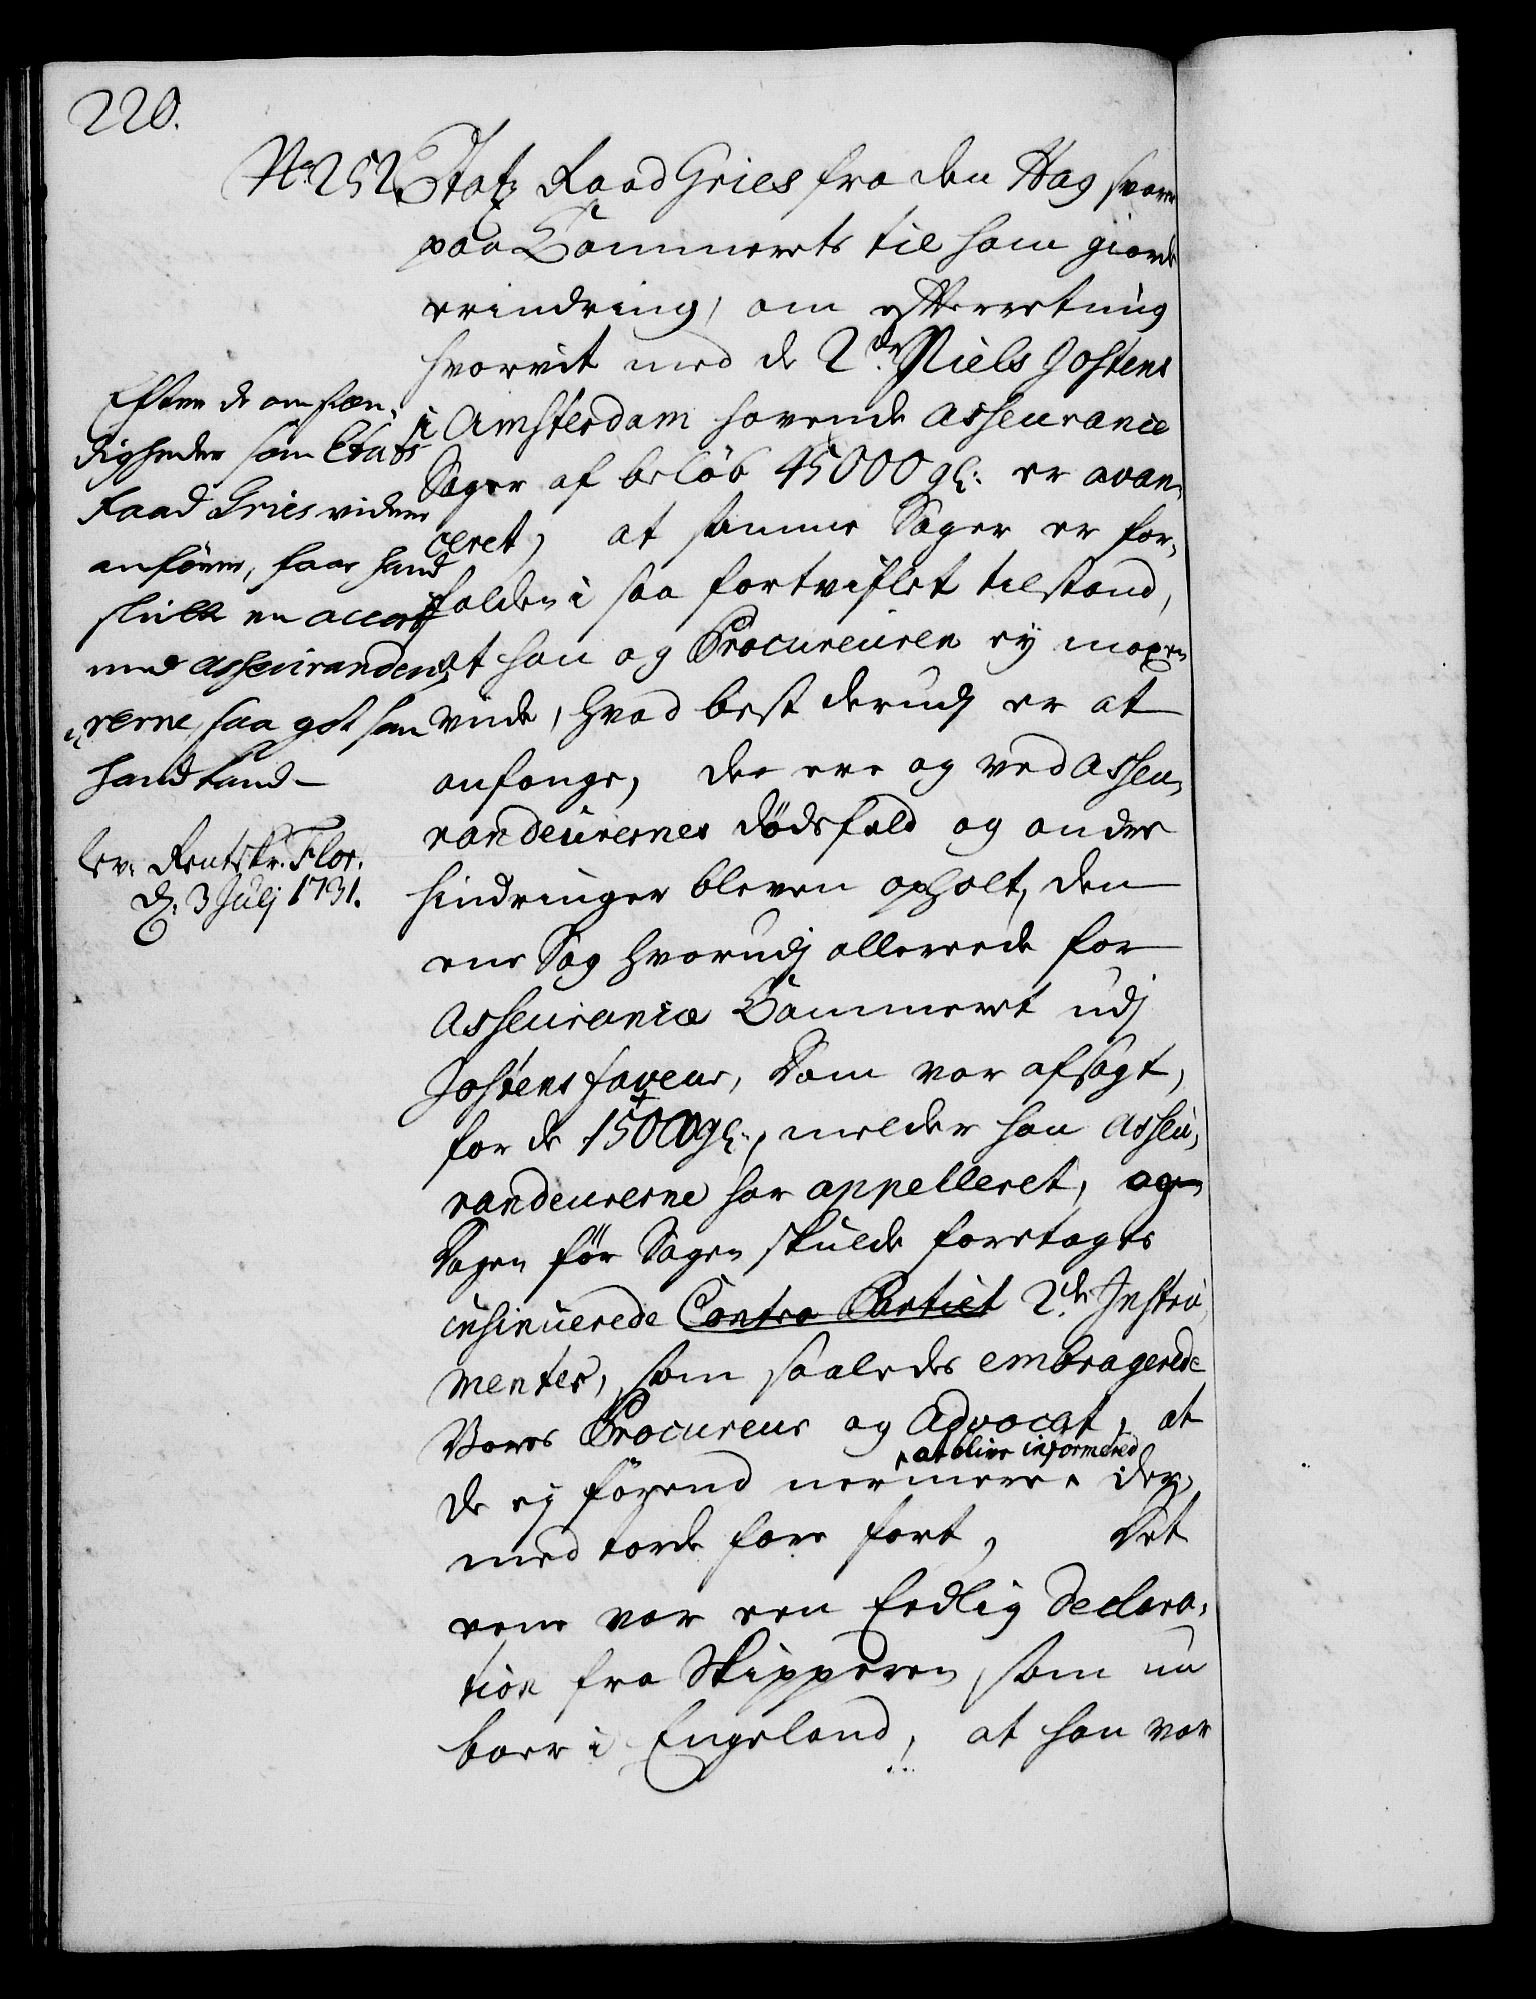 220.
No 252. Etatz Raad Gries fra den Hag svarer
paa Cammerets til ham giorde
erindring, om efterretning
hvorvit med de 2de Niels Jostens
i Amsterdam havende Asseurance
Sager af beløb 45000 gl: er avan-
ceret, at samme Sager er for-
falden i saa fortviflet tilstand,
at han og Procureuren ey maxen
viide, hvad best derudj er at
anfange, der ere og ved Asseu-
randeurernes dødsfald og andre
hindringer bleven opholt, den
ene Sag hvorudj allereede for
Asseurance Cammeret udj
Jostens faveur, Dom var afsagt,
for de 15000 gl:, melder han Asseu-
randeurerne har appelleret, og
Dagen før Sagen skulde foretages
insinuerede Contra Partiet 2de Instru-
menter, som saaledes embragerede
Vores Procureur og Advocat, at
de ej førend nermere at blive informered der-
med torde fare fort, Det
eene var een Eedlig Declara-
tion fra Skipperen, som nu
boer i Engeland, at han var
Efter de omstæn-
digheder som Etats
Raad Gries videre
anfører, faar hand
slutte en accord
med Asseurandeu-
rerne, saa got som
hand kand
lev: Rentskr. Flor.
d: 3 Julj 1731.